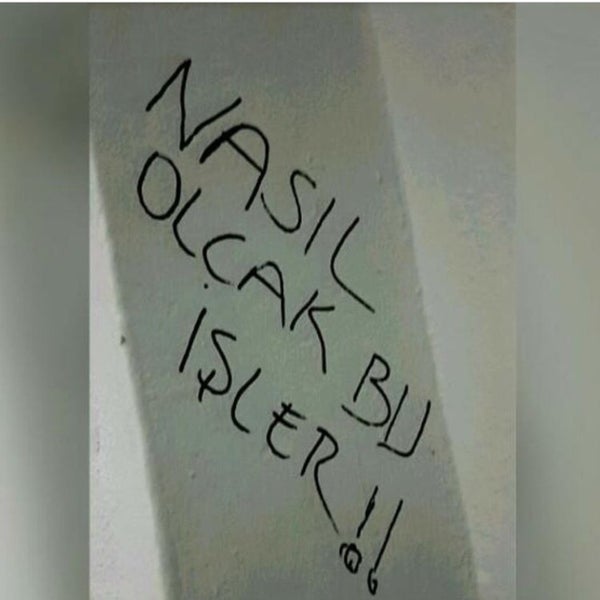 NASIL
OLCAK BU
İŞLER!!